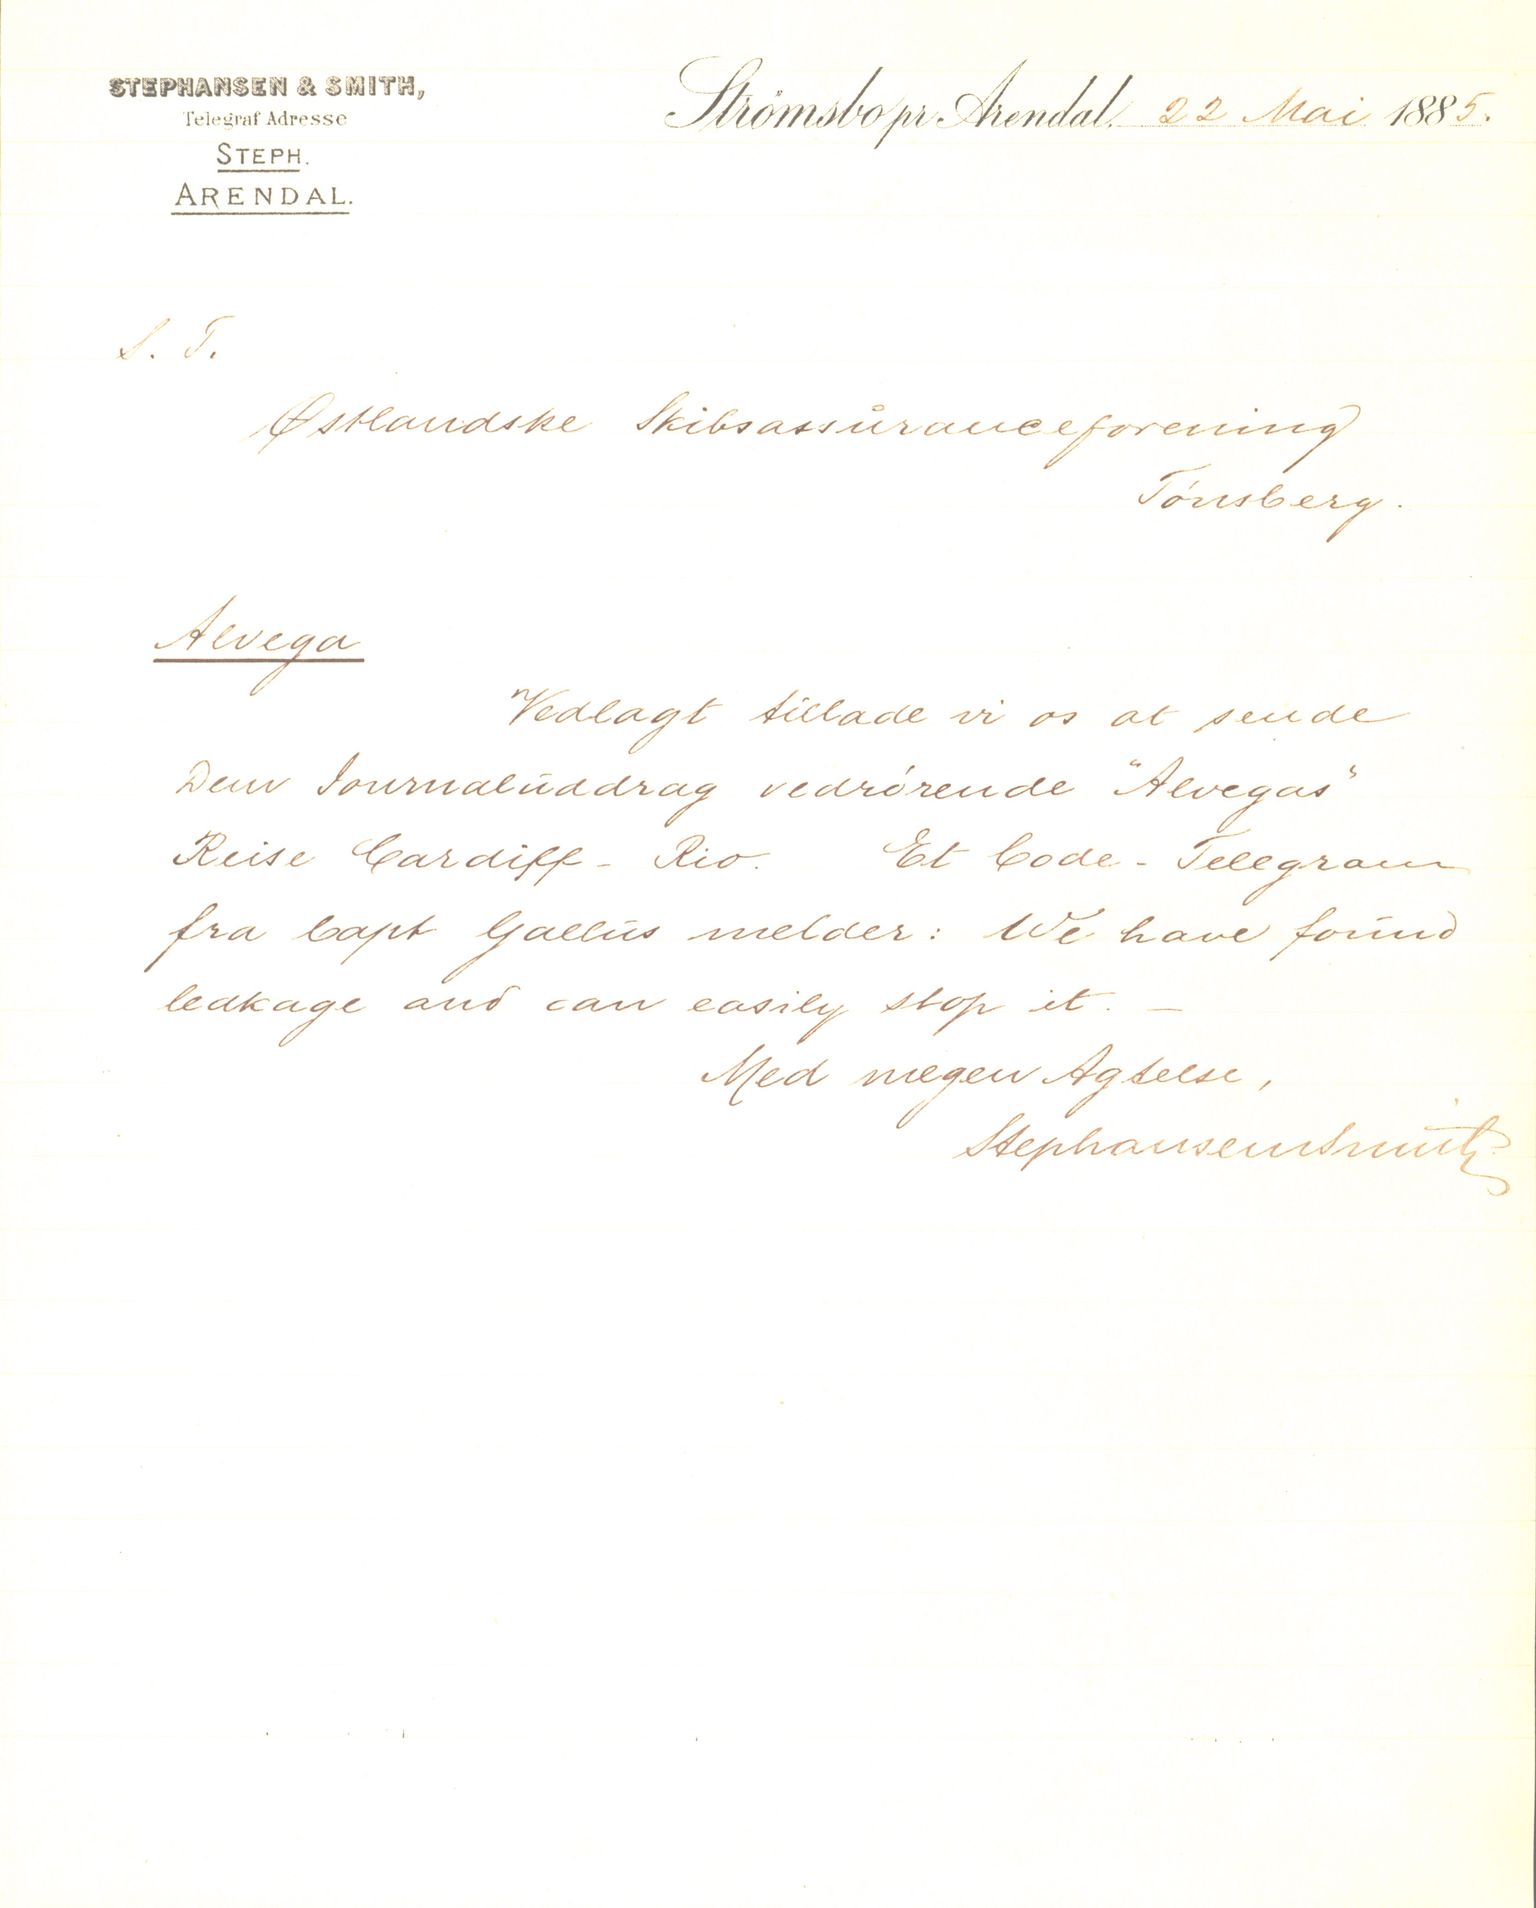 STEPHANSEN & SMITH,
Telegraf Adresse
STEPH.
ARENDAL.
Strömsbo pr Arendal, 22 Mai 1885.
S. T.
Østlandske Skibsassuranceforening
Tønsberg.
Alvega
Vedlagt tillade vi os at sende
Dem Journaluddrag vedrørende "Alvegas"
Reise Cardiff - Rio. Et Code-Telegram
fra Capt Gallus melder: We have found
leakage and can easily stop it. —
Med megen Agtelse,
Stephansen Smith